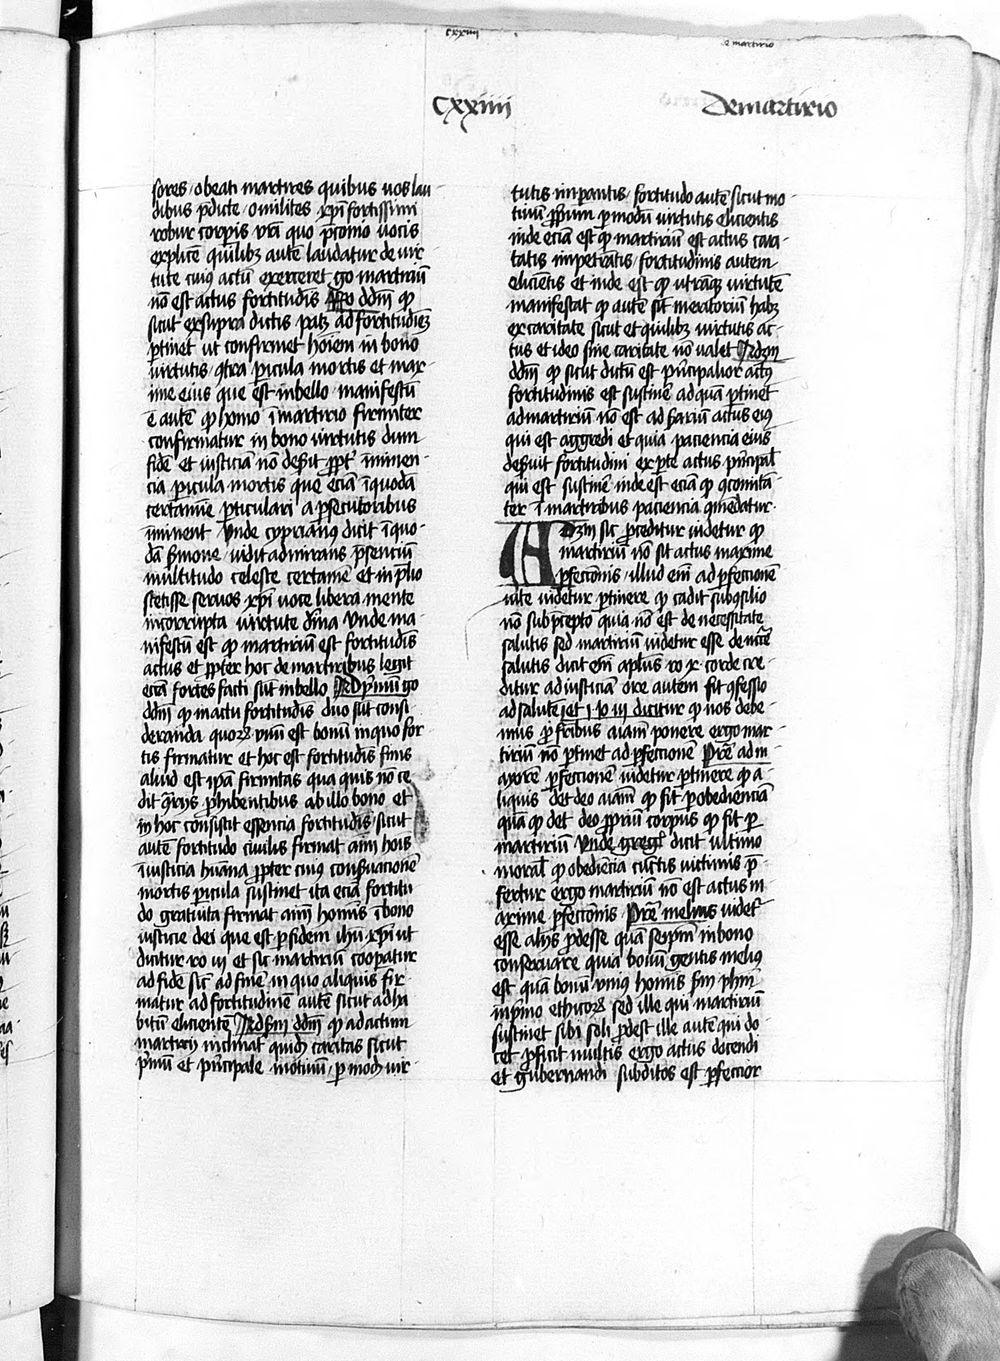 cxxiiii
de martirio
cxxiiii
De martirio
sores / o beati martires quibus uos lau
dibus p̄dicē / o milites xp̄i fortissimi
robur corꝑis vrī quo p̄conio uocis
explicē quilibꝫ autē laudatur de vir
tute cuiꝰ actū exerceret g̊ martiriū
nō est actus fortitudīs Rō dd̄m ꝙ
sicut ex supra dictis patꝫ ad fortitudiēꝫ
ꝑtinet ut confirmet hoīem in bono
uirtutis / ꝯtra ꝑicula mortis et max
ime eius que est in bello / manifestū
ē autē ꝙ homo ī martirio firmiter
confirmatur in bono uirtutis dum
fidē et iusticiā nō des̄it ꝓpt̄ īminen
cia ꝑicula mortis que eciā ī quodā
certamīe ꝑticulari a ꝑsecutoribus
īminent Vnde cyprianꝰ dicit ī quo
dā s̄mone / uidit admirans p̄senciū
multitudo celeste certamē et in p̄lio
stetisse seruos xp̄i uoce libera mente
incorrupta uirtute dīna Vnde ma
nifestū est ꝙ martiriū est fortitudīs
actus et ꝓpter hoc de martiribus legit
ecīa fortes facti sūt in bello Ad p̄mū g̊
dd̄m ꝙ in actu fortitudīs duo sūt consi
deranda quorꝫ vnū est bonū in quo for
tis firmatur et hoc est fortitudīs finis
aliud est ip̄a firmitas qua quis nō ce
dit ꝯtrarijs ꝓhibentibus ab illo bono et
in hoc consistit essencia fortitudīs / sicut
autē fortitudo ciuilis firmat aīm hoīs
ī iusticia hūana ꝓpter cuiꝰ conseruacionē
mortis ꝑicula sustinet ita eciā fortitu
do gratuita firmat aīm homīs ī bono
iusticie dei que est ꝑ fidem ihū xp̄i ut
dicitur ro iij et sic martiriū coꝑatur
ad fidē sic̄ ad finē in quo aliquis fir
matur ad fortitudinē autē sicut ad ha
bitū eliciente Ad s̄m dd̄m ꝙ ad actum
martirij inclinat quidē caritas sicut
p̄mū et p̄ncipale motiuū / ꝑ modū vir
tutis imꝑantis / fortitudo autē sicut mo
tiuū ꝓp̄um ꝑ modū uirtutis elicientis
inde eciā est ꝙ martiriū est actus cari
tatis imꝑātis / fortitudīs autem
elicientis et inde est ꝙ utrāqꝫ uirtutē
manifestat ꝙ autē sit meritoriū habꝫ
ex caritate sicut et quilibꝫ uirtutis ac
tus et ideo sine caritate nō ualet Ad 3m
dd̄m ꝙ sicut dictū est p̄ncipalior actꝰ
fortitudīs est sustinē ad quā ꝑtinet
ad martiriū nō est ad s̄ariū actus eiꝰ
qui est aggredi et quia paciencia eius
deseruit fortitudini ex ꝑte actus p̄ncipal̄
qui est sustinē inde est eciā ꝙ ꝯcomitā
ter ī martiribus paciencia ꝯmēdatur
Ad 3m sic ꝓceditur uidetur ꝙ
martiriū nō sit actus maxime
ꝑfectionis / illud enī ad ꝑfectionē
uite uidetur ꝑtinere ꝙ cadit sub ꝯsilio
nō sub p̄cepto quia nō est de necessitate
salutis sed martiriū uidetur esse de nc̄ē
salutis dicit enī ap̄lus ro x corde cre
ditur ad iusticiā ore autem fit ꝯfessio
ad salutē et j io iij dicitur ꝙ nos debe
mus ꝓ fr̄ibus aīam ponere ergo mar
tiriū nō ꝑtinet ad ꝑfectionē Pret̄ ad m
aiorē ꝑfectionē uidetur ꝑtinere ꝙ a
liquis det deo aīam ꝙ fit ꝑ obedienciā
quā ꝙ det deo ꝓpriū corpus ꝙ fit ꝑ
martiriū Vnde greg̊ dicit ultimo
moral̄ ꝙ obediēcia cūctis uictimis p̄
fertur ergo martiriū nō est actus m
axime ꝑfectionis Pret̄ melius uidet̄
esse alijs ꝓdesse quā seip̄m in bono
conseruare quia bonū gentis meliꝰ
est quā bonū vniꝰ homīs s̄m ph̄m
in p̄mo ethicorꝫ sed ille qui martiriū
sustinet sibi soli ꝓdest ille autē qui do
cet ꝓficit multis ergo actus docendi
et gubernandi subditos est ꝑfectior